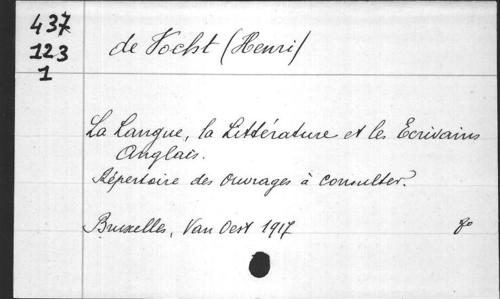 437
123
1
de Vocht (Henri)
La Langue, la Littérature et les Ecrivains
Anglais.
Répertoire des ouvrages à consulter.
Bruxelles, Van Oest 1917 8o